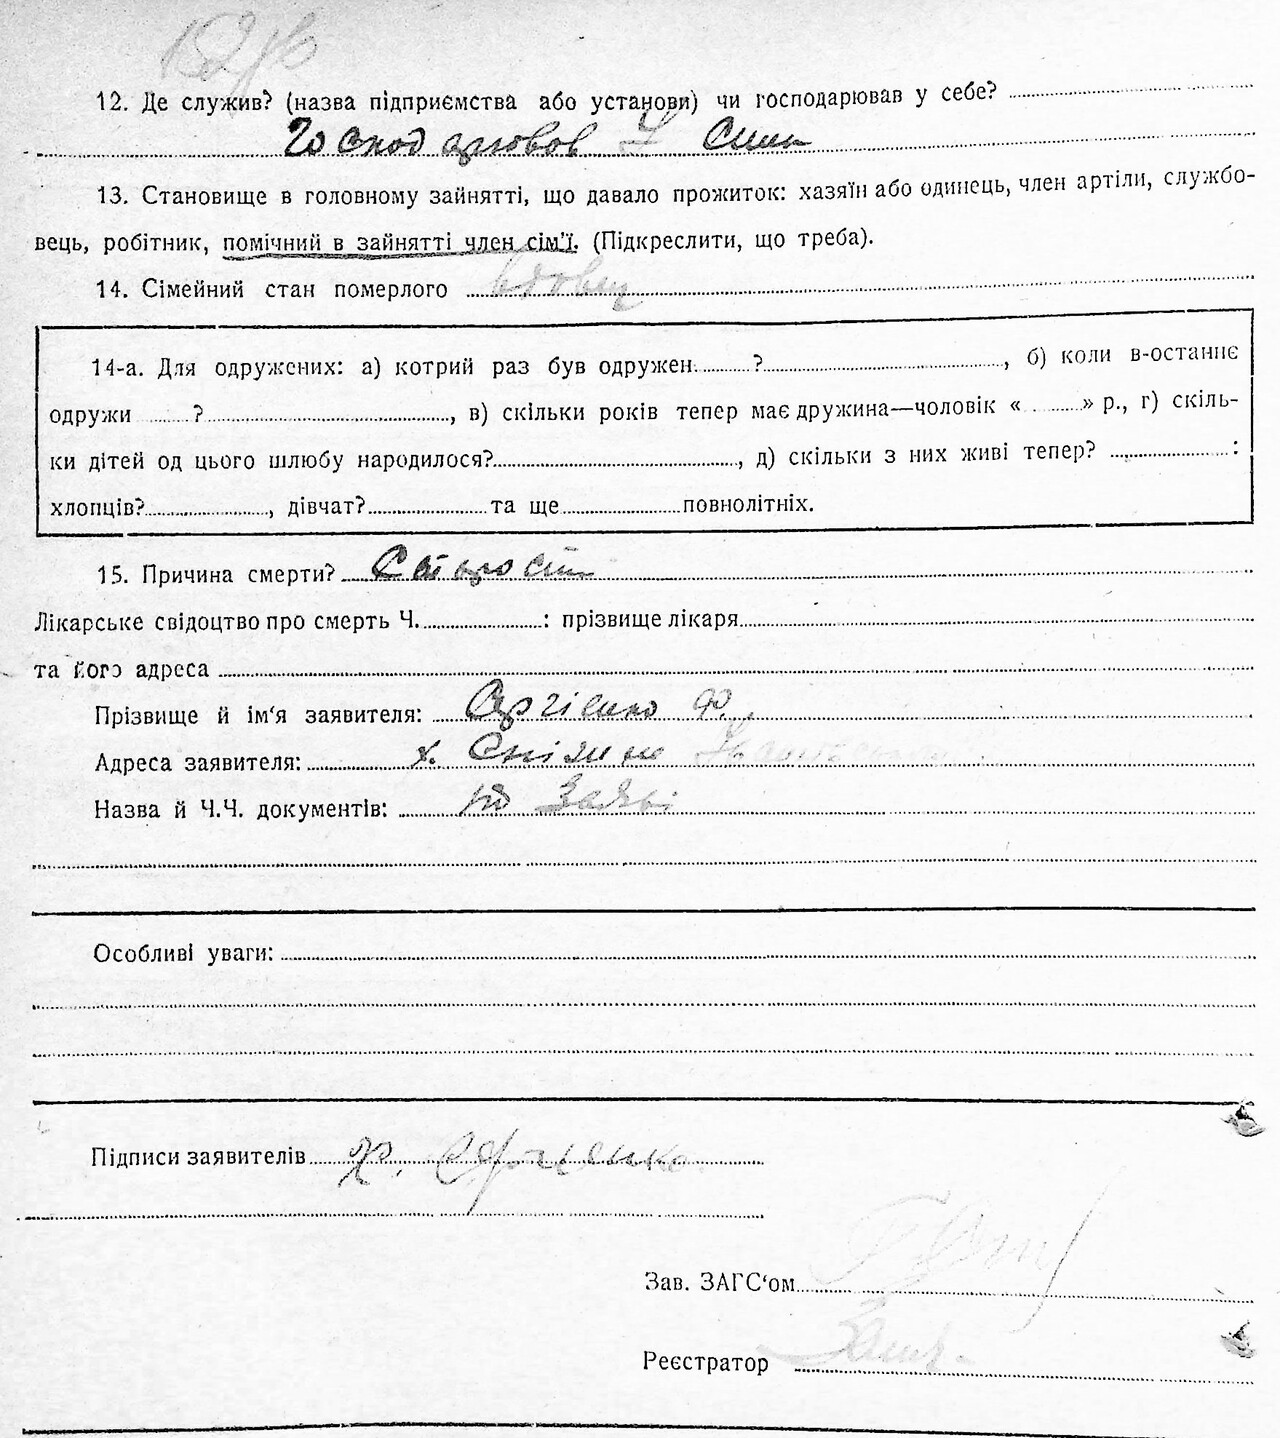 12. Де служив? (назва підприємства або установи) чи господарював у себе?
Господарював у сина
13. Становище в головному зайнятті, що давало прожиток: хазяїн або одинець, член артіли, службо-
вець, робітник, помічний в зайнятті член сім'ї. (Підкреслити, що треба).
14. Сімейний стан померлого вдовец
14-а. Для одружених: а) котрий раз був одружен ?, б) коли в-останнє
одружи ?, в) скільки років тепер має дружина—чоловік « » р., г) скіль-
ки дітей од цього шлюбу народилося?, д) скільки з них живі тепер? :
хлопців?, дівчат? та ще повнолітніх.
15. Причина смерти? Старость
Лікарське свідоцтво про смерть Ч. : прізвище лікаря
та його адреса
Прізвище й ім'я заявителя: Сергієнко Ф.
Адреса заявителя: х.
Назва й Ч.Ч. документів: по заяві
Особливі уваги:
Підписи заявителів Ф. Сергиенко
Зав. ЗАГС'ом
Реєстратор